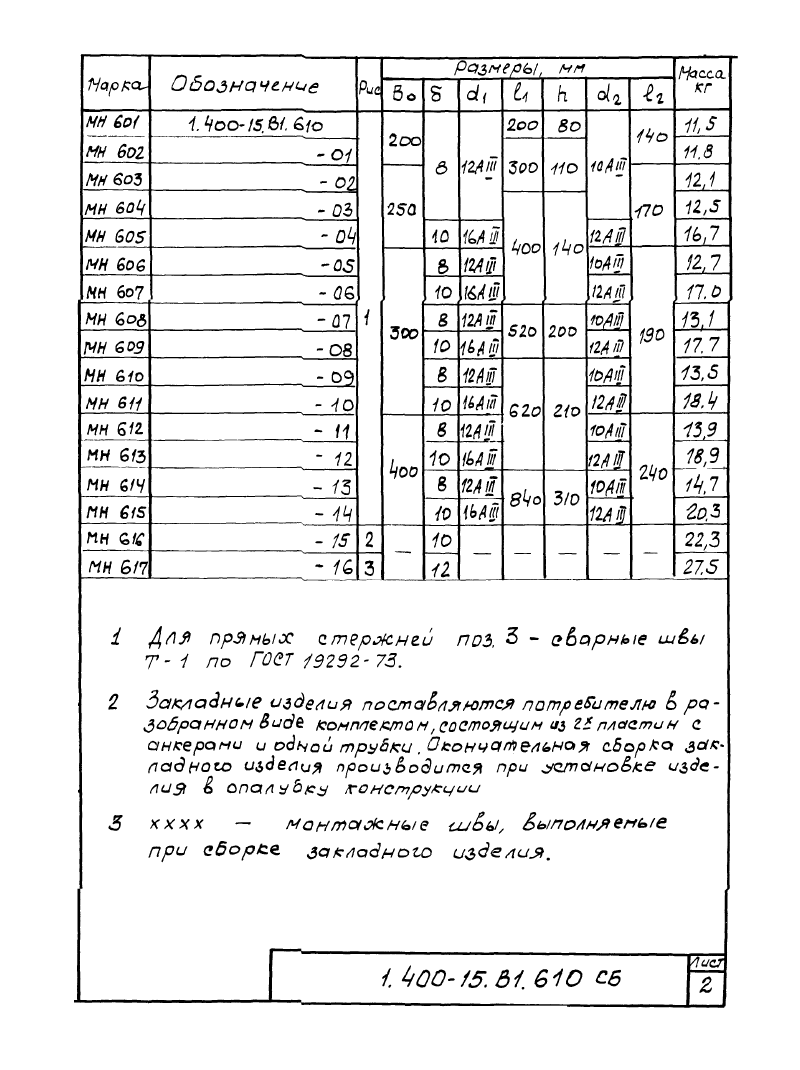 Размеры, мм
Марка Обозначение Рис B₀ δ d₁ l₁ h d₂ l₂ Масса кг
МН 601 1.400-15.В1.610 1 200 8 12АIII 200 80 10АIII 140 11,5
МН 602 -01 300 110 11.8
МН 603 -02 250 170 12,1
МН 604 -03 400 140 12,5
МН 605 -04 10 16АIII 12АIII 16,7
МН 606 -05 300 8 12АIII 10АIII 190 12,7
МН 607 -06 10 16АIII 12АIII 17.0
МН 608 -07 8 12АIII 520 200 10АIII 13,1
МН 609 -08 10 16АIII 12АIII 17.7
МН 610 -09 8 12АIII 620 210 10АIII 13,5
МН 611 -10 10 16АIII 12АIII 18.4
МН 612 -11 400 8 12АIII 10АIII 240 13,9
МН 613 -12 10 16АIII 12АIII 18,9
МН 614 -13 8 12АIII 840 310 10АIII 14,7
МН 615 -14 10 16АIII 12АIII 20,3
МН 616 -15 2 — 10 — — — — — 22,3
МН 617 -16 3 12 27.5
1 Для прямых стержней поз. 3 - сварные швы
Т-1 по ГОСТ 19292-73.
2 Закладные изделия поставляются потребителю в ра-
зобранном виде комплектом, состоящим из 2х пластин с
анкерами и одной трубки. Окончательная сборка зак-
ладного изделия производится при установке изде-
лия в опалубку конструкции
3 хххх — монтажные швы, выполняемые
при сборке закладного изделия.
1.400-15.В1.610 СБ
Лист
2